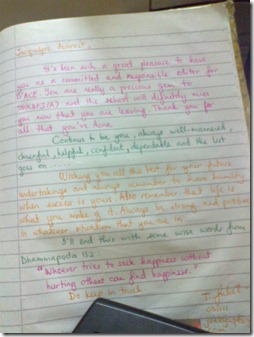 dearest,
It's been such a great pleasure to have
you as a committed and responsible editor for
PACE. You are really a precious gem to
and the school will definitely miss
you now that you are leaving. Thank you for
all that you've done.
Continue to be you, always well-mannered,
cheerful, helpful, confident, dependable and the list
goes on
Wishing you all the best for your future
undertakings and always remember to have humility
when success is yours. Also remember that life is
what you make of it. Always be strong and positive
in whatever situation that you are in.
I'll end this with some wise words from
Dhammapada 132:
"Whoever tries to seek happiness without
hurting others can find happiness."
Do keep in touch.